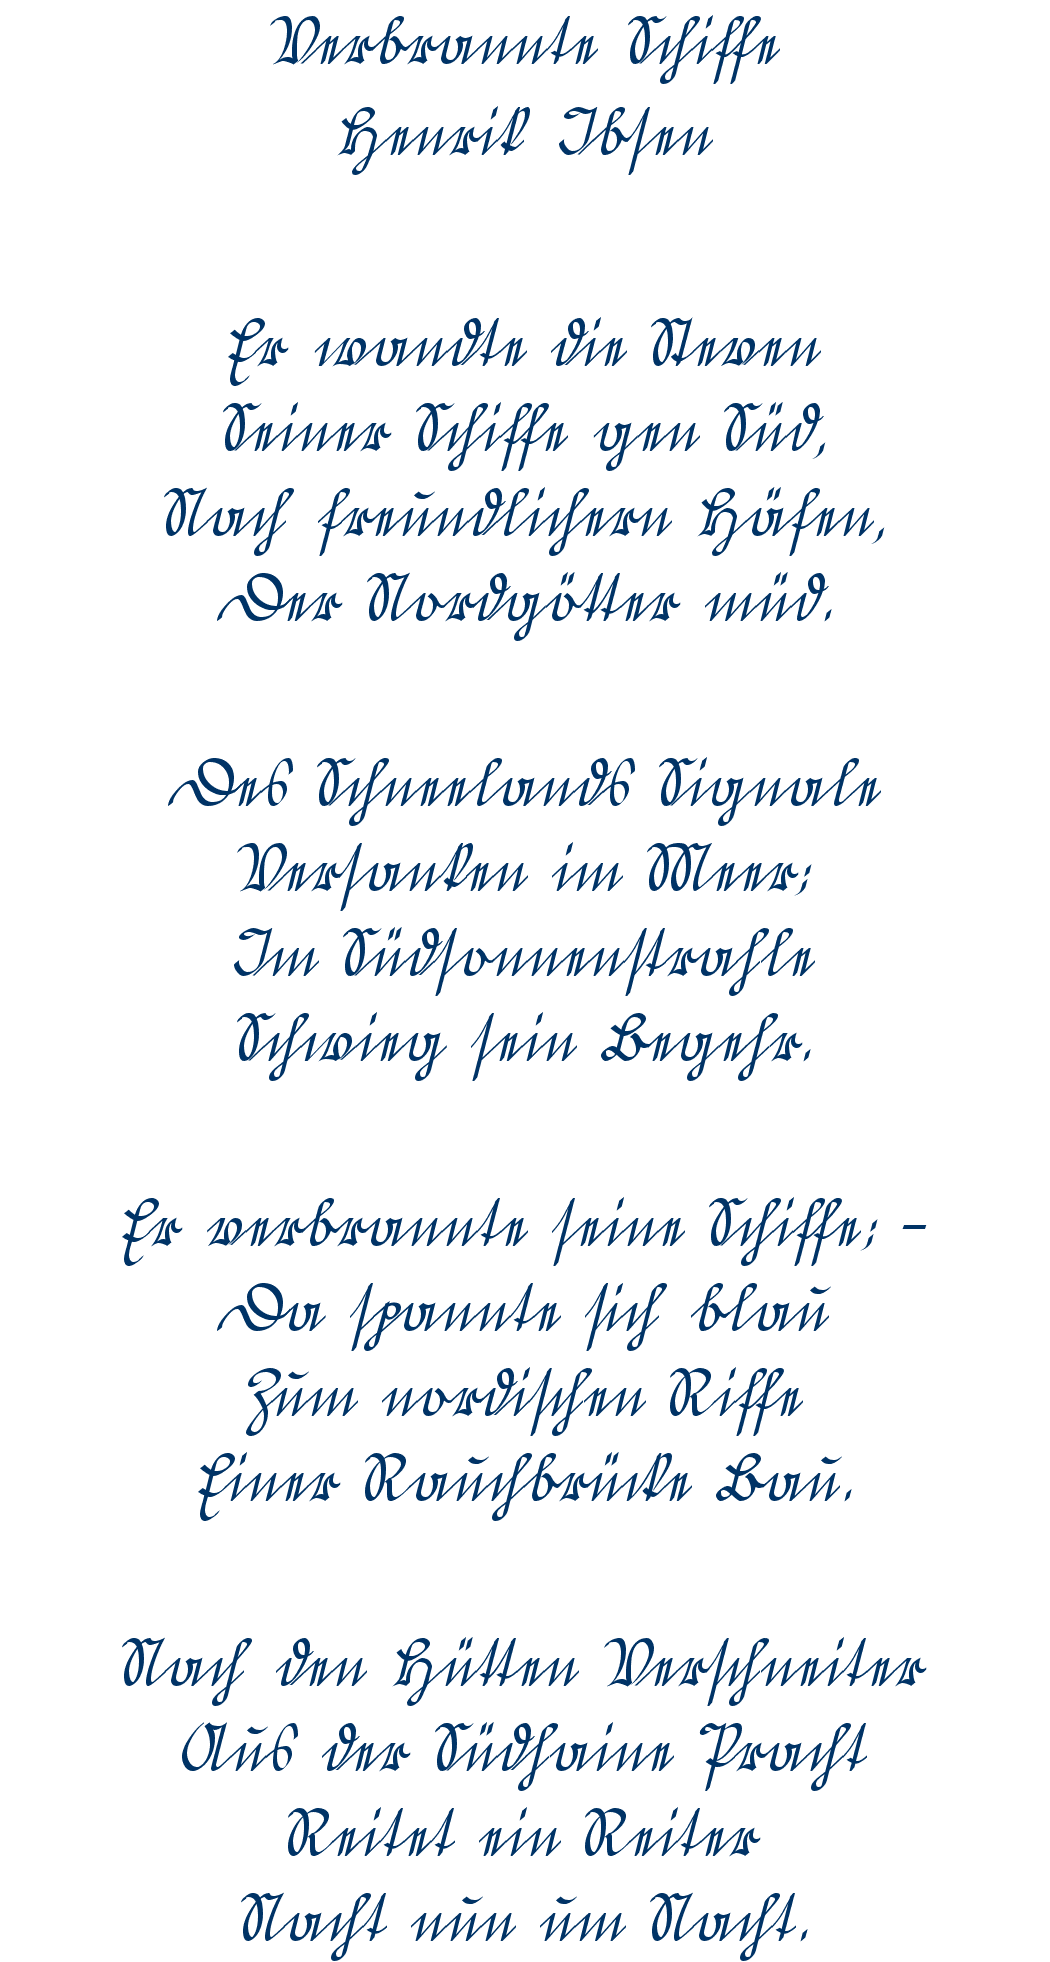 Verbrannte Schiffe
Henrik Ibsen
Er wandte die Steven
Seiner Schiffe gen Süd,
Nach freundlichern Häfen,
Der Nordgötter müd.
Des Schneelands Signale
Versanken im Meer;
Im Südsonnenstrahle
Schwieg sein Begehr.
Er verbrannte seine Schiffe; –
Da spannte sich blau
Zum nordischen Riffe
Einer Rauchbrücke Bau.
Nach den Hütten Verschneiter
Aus der Südhaine Pracht
Reitet ein Reiter
Nacht nun um Nacht.